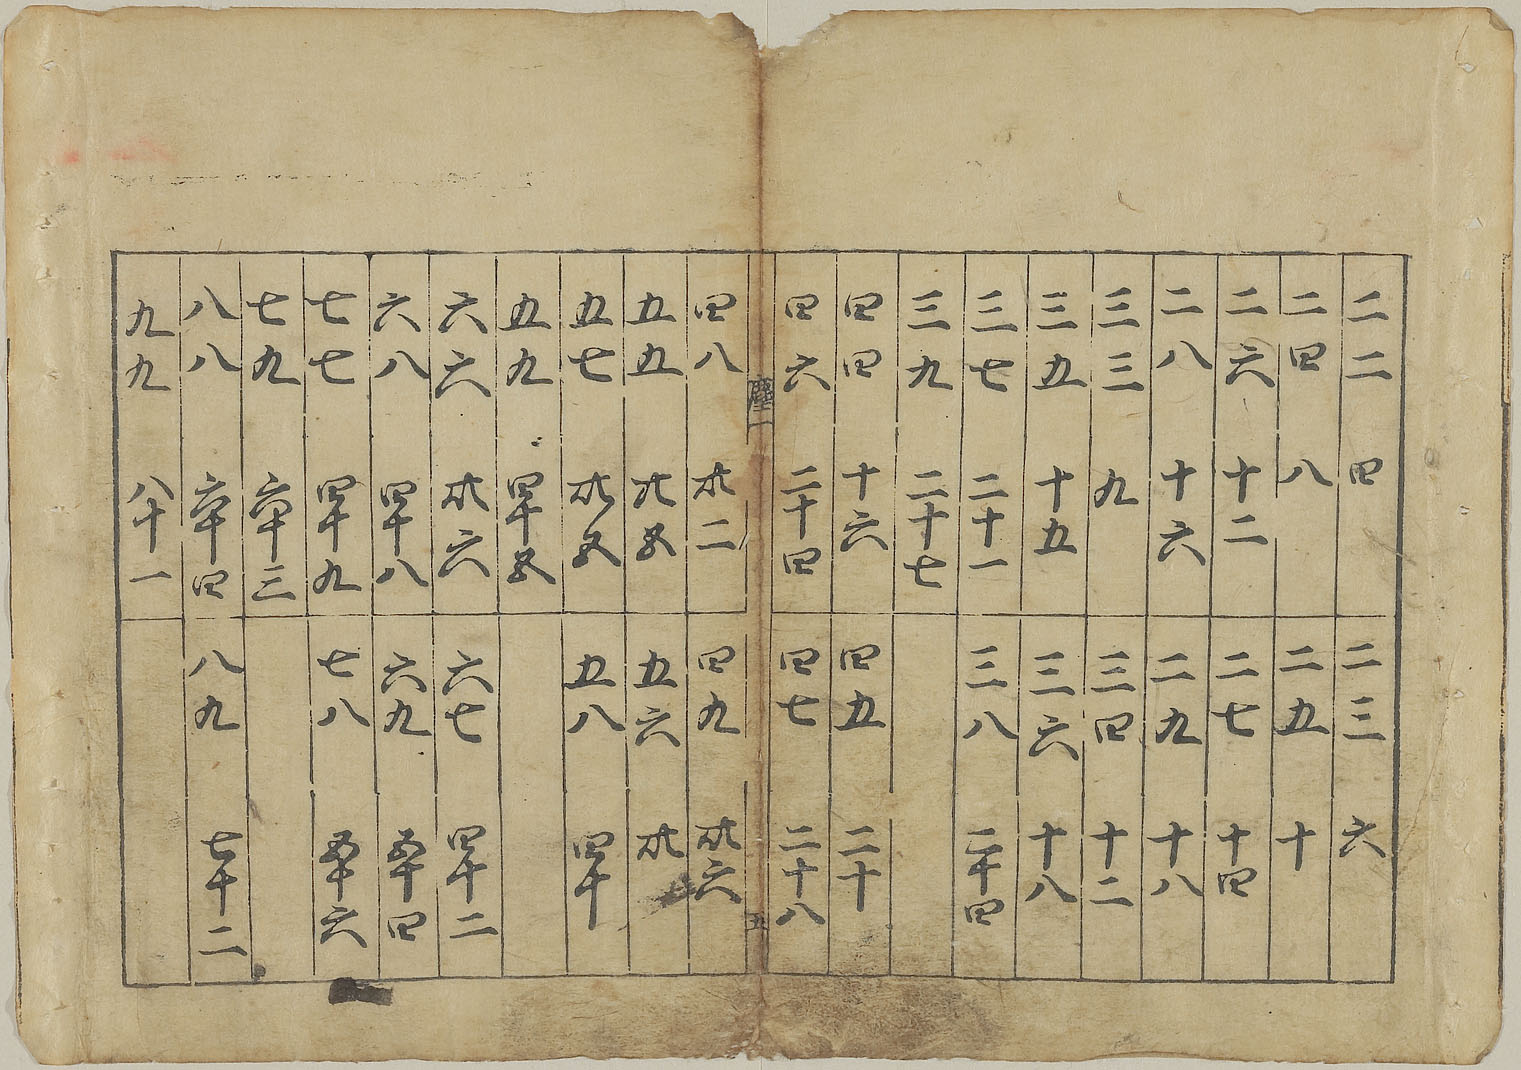 二二 四 二三 六
二四 八 二五 十
二六 十二 二七 十四
二八 十六 二九 十八
三三 九 三四 十二
三五 十五 三六 十八
三七 二十一 三八 二十四
三九 二十七
四四 十六 四五 二十
四六 二十四 四七 二十八
塵一 五
四八 卅二 四九 卅六
五五 廿五 五六 卅
五七 卅五 五八 四十
五九 四十五
六六 卅六 六七 四十二
六八 四十八 六九 五十四
七七 四十九 七八 五十六
七九 六十三
八八 六十四 八九 七十二
九九 八十一